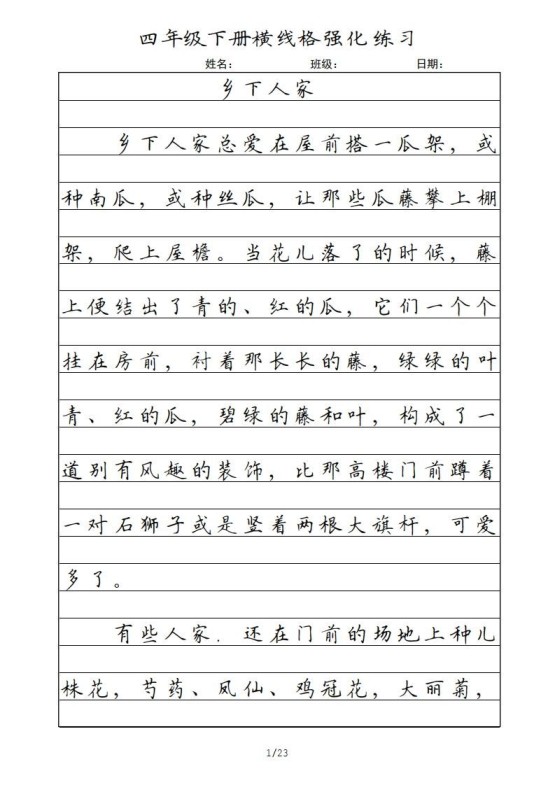 四年级下册横线格强化练习
姓名： 班级： 日期：
乡下人家
乡下人家总爱在屋前搭一瓜架，或
种南瓜，或种丝瓜，让那些瓜藤攀上棚
架，爬上屋檐。当花儿落了的时候，藤
上便结出了青的、红的瓜，它们一个个
挂在房前，衬着那长长的藤，绿绿的叶
青、红的瓜，碧绿的藤和叶，构成了一
道别有风趣的装饰，比那高楼门前蹲着
一对石狮子或是竖着两根大旗杆，可爱
多了。
有些人家．还在门前的场地上种几
株花，芍药、凤仙、鸡冠花，大丽菊，
1/23